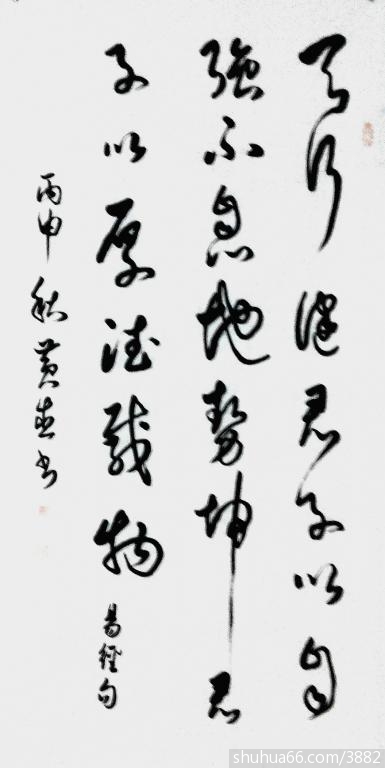 天行健君子以自
強不息地勢坤君
子以厚德載物
易經句
丙申秋黄书
shuhua66.com/3882